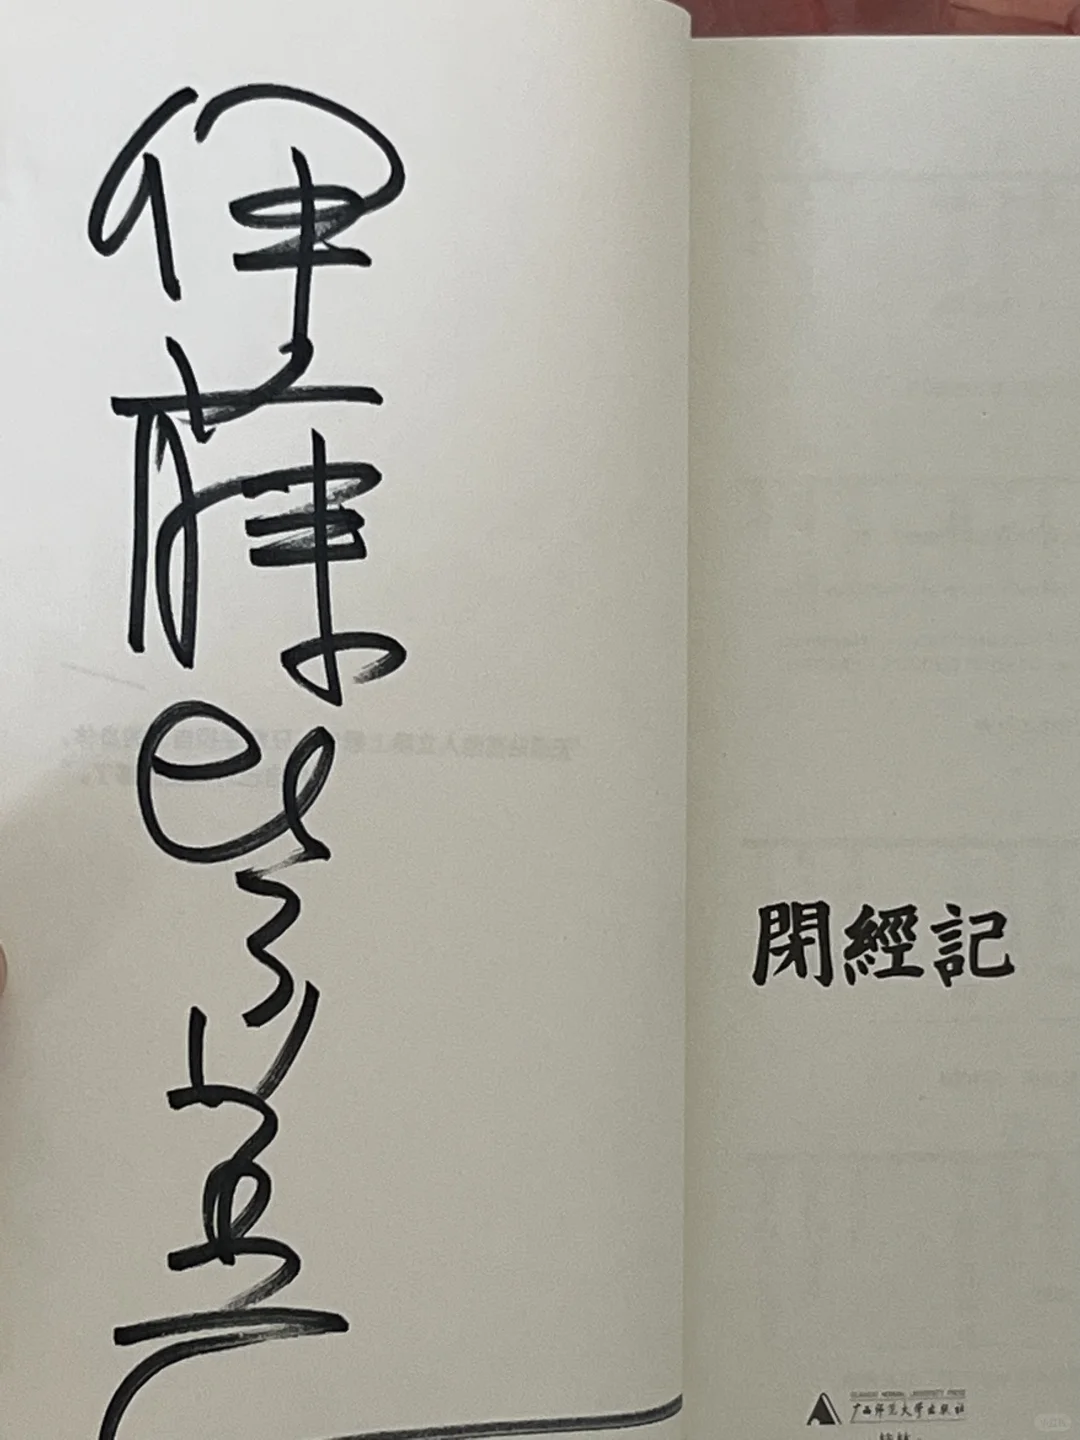 伊藤比呂美
閉經記
GUANGXI NORMAL UNIVERSITY PRESS
广西师范大学出版社
桂林
小红书